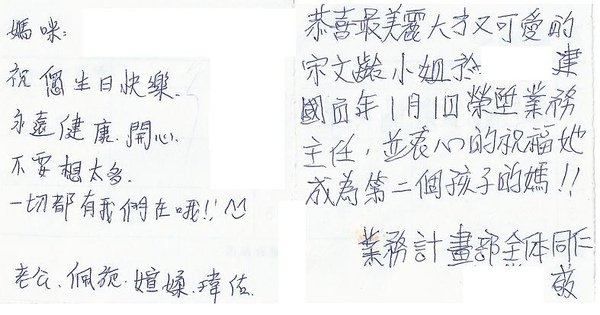 媽咪:
祝您生日快樂.
永遠健康.開心.
不要想太多.
一切都有我們在哦!!
老公.佩菀.媗嬫.瑋佑.
恭喜最美麗大方又可愛的
宋文齡小姐於 建
國百年1月1日榮陞業務
主任，並衷心的祝福她
成為第二個孩子的媽!!
業務計畫部全体同仁
敬